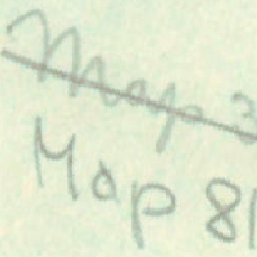 Map 3
Map 81